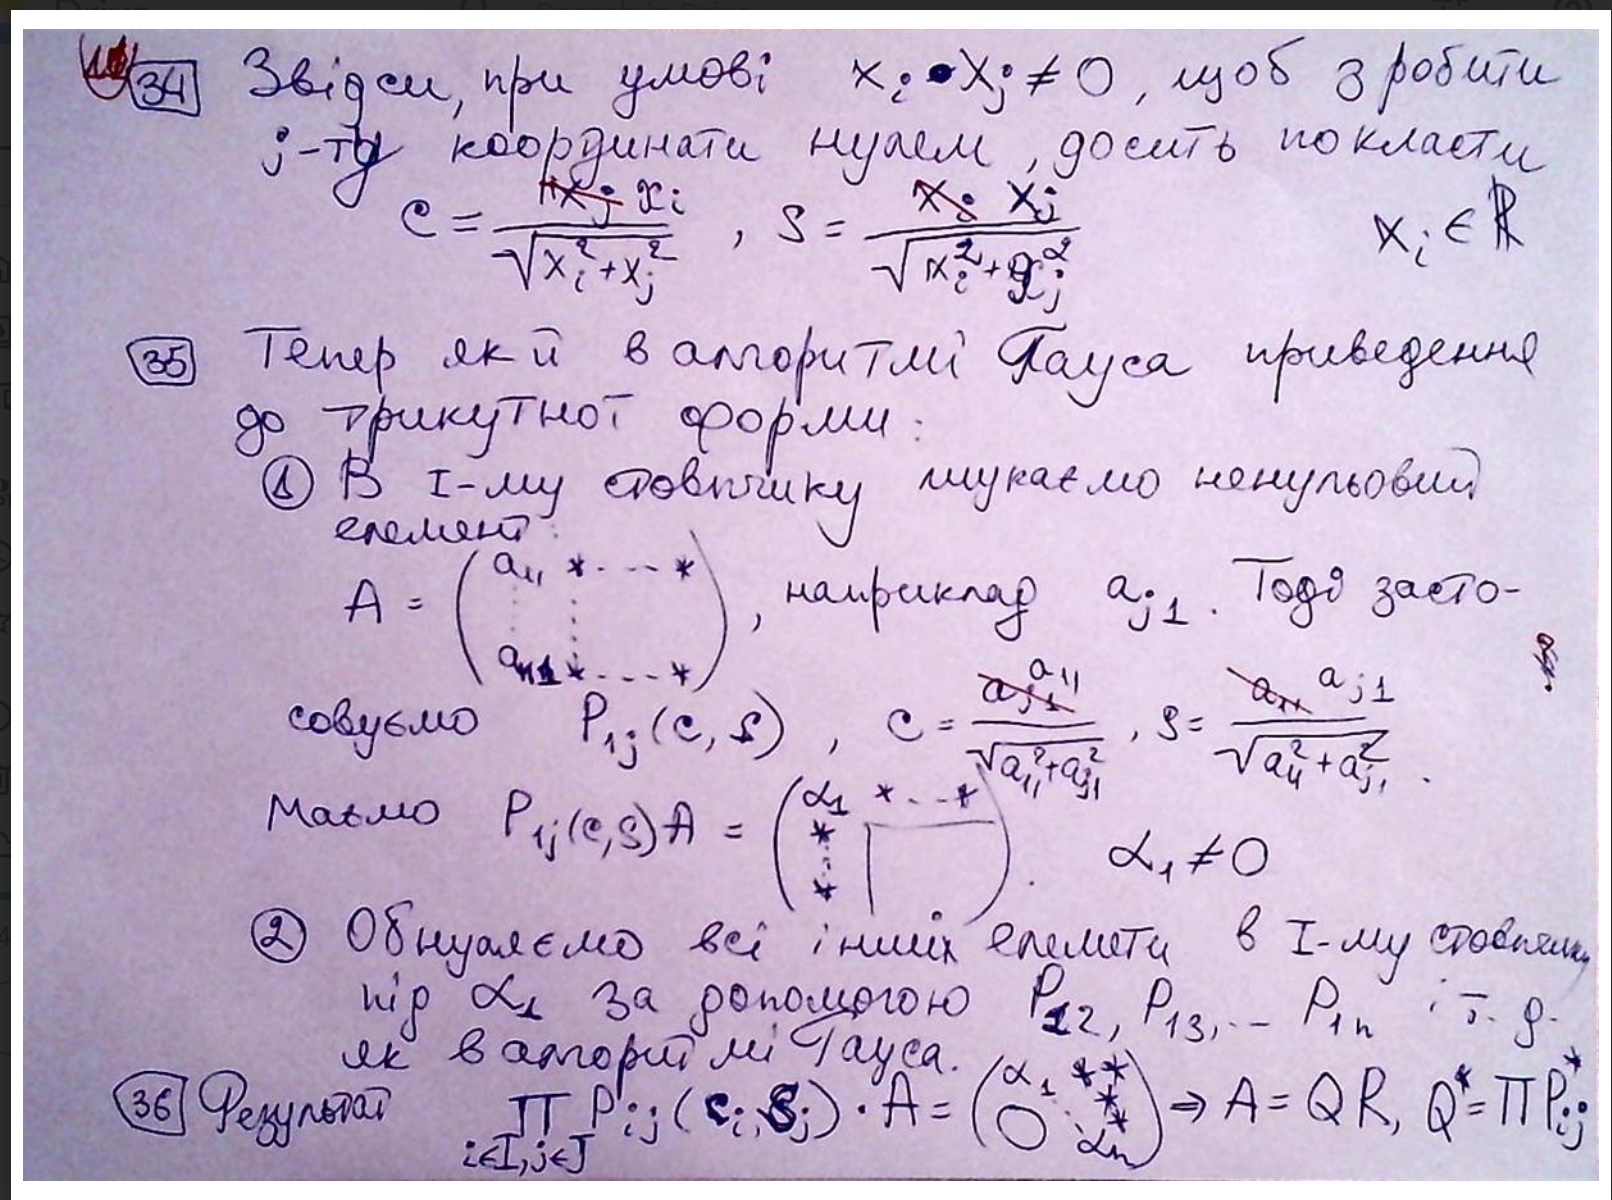 34 Звідси, при умові x_i • x_j ≠ 0, щоб зробити
j-ту координати нулем, досить покласти
c = x_i / √(x_i² + x_j²), s = x_j / √(x_i² + x_j²) x_i ∈ ℝ
35 Тепер як й в алгоритмі Гауса приведення
до трикутної форми:
① В I-му стовпчику шукаємо ненульовий
елемент:
A = ( a₁₁ * ... * ; a_n1 * ... * ), наприклад a_j1. Тоді засто-
совуємо P_1j(c, s), c = a₁₁ / √(a₁₁² + a_j1²), s = a_j1 / √(a₁₁² + a_j1²).
Маємо P_1j(c,s)A = ( α₁ * ... * ; * ; ⋮ ; * ). α₁ ≠ 0
② Обнуляємо всі інших елемети в I-му стовпчику
під α₁ за допомогою P₁₂, P₁₃, ... P_1n і т. д.
як в алгоритмі Гауса.
36 Результат ∏_{i∈I, j∈J} P_ij(c_i, s_j) · A = ( α₁ * * ; * ; 0 ⋱ * ; α_n ) ⇒ A = QR, Q* = ∏ P_ij*